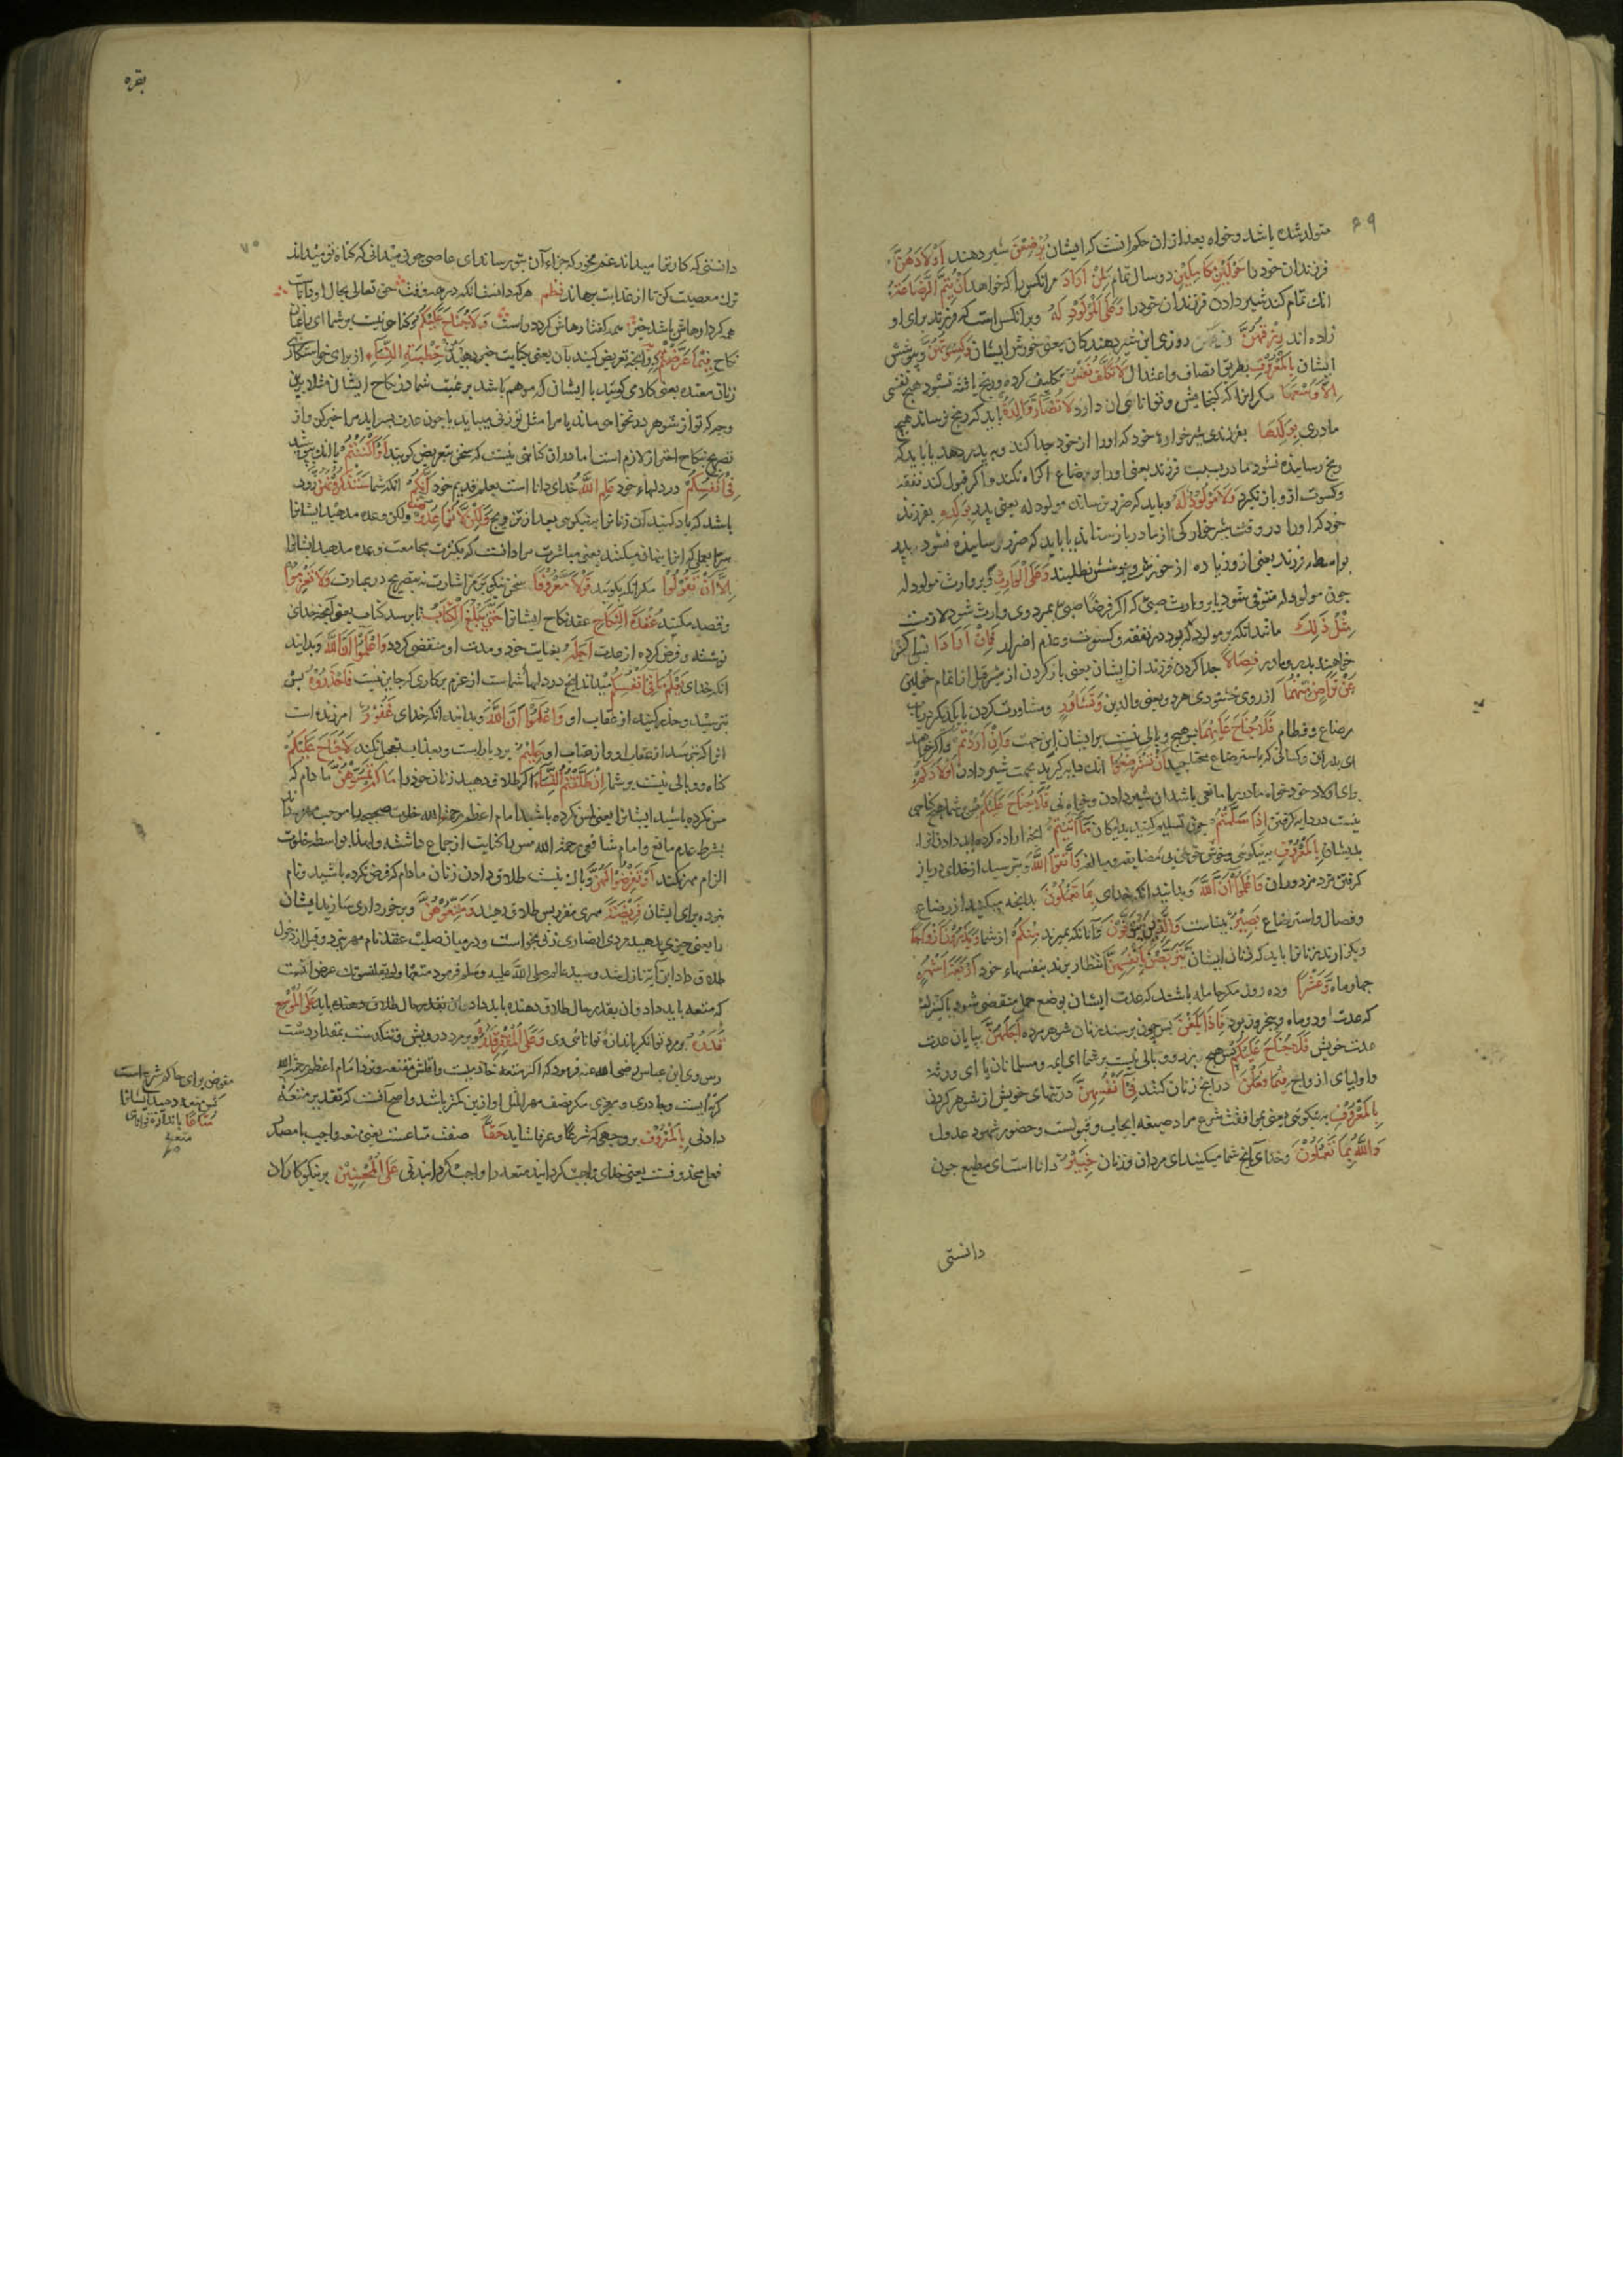 ۶۹
متولد شده باشد و خواه بعد از ان حکم انست که ایشان یُرْضِعْنَ شیر دهند اَوْلَادَهُنَّ
فرزندان خود را حَوْلَیْنِ کَامِلَیْنِ دو سال تمام لِمَنْ اَرَادَ مر انکس را که خواهد اَنْ یُتِمَّ الرَّضَاعَةَ
انک تمام کند شیر دادن فرزندان خود را وَعَلَی الْمَوْلُوْدِ لَهٗ و بر انکس است که فرزند برای او
زاده اند رِزْقُهُنَّ روزی این شیر دهندکان یعنی خورش ایشان وَکِسْوَتُهُنَّ و پوشش
ایشان بِالْمَعْرُوْفِ بطریق انصاف و اعتدال لَا تُکَلَّفُ نَفْسٌ تکلیف کرده و رنج یافته نشود هیچ نفسی
اِلَّا وُسْعَهَا مکر انرا که کنجایش و توانائی ان دارد لَا تُضَارَّ وَالِدَةٌ باید که رنج نرساند هیچ
مادری بِوَلَدِهَا بفرزندی شیرخوارهٔ خود که او را از خود جدا کند و به پدر دهد یا باید که
رنج رسانیده نشود مادر بسبب فرزند یعنی او را بر رضاع اکراه نکنند و اکر قبول کند نفقه
و کسوت ازو باز نکیرد وَلَا مَوْلُوْدٌ لَهٗ و باید که ضرر نرساند مولود له یعنی پدر بِوَلَدِهٖ بفرزند
خود که او را در وقت شیرخوارکی از مادر باز ستاند یا باید که ضرر رسانیده نشود پدر
بواسطه فرزند یعنی ازو زیاده از خورش و پوشش نطلبند وَعَلَی الْوَارِثِ و بر وارث مولود له
چون مولود له متوفی شود یا بر وارث صبی که اکر فرضا صبی بمیرد وی وارث شود لازمست
مِثْلُ ذٰلِکَ مانند انکه بر مولود له بود در نفقه و کسوت و عدم اضرار فَاِنْ اَرَادَا پس اکر
خواهند پدر و مادر فِصَالًا جدا کردن فرزند از ایشان یعنی باز کردن از شیر قبل از اتمام حولین
عَنْ تَرَاضٍ مِنْهُمَا از روی خشنودی هر دو یعنی والدین وَتَشَاوُرٍ و مشاورت کردن با یکدیکر در باب
رضاع و فطام فَلَا جُنَاحَ عَلَیْهِمَا پس هیچ وبالی نیست بر ایشان ازین جهت وَاِنْ اَرَدْتُمْ و اکر خواهید
ای پدران و کسانی که باسترضاع محتاجید اَنْ تَسْتَرْضِعُوْا انک دایه کیرید بجهت شیر دادن اَوْلَادَکُمْ
برای اولاد خود خواه مادر را مانعی باشد از شیر دادن و خواه نی فَلَا جُنَاحَ عَلَیْکُمْ پس بر شما هیچ کناهی
نیست در دایه کرفتن اِذَا سَلَّمْتُمْ چون تسلیم کنید بدایکان مَا اٰتَیْتُمْ انچه اراده کرده اید دادن انرا
بدیشان بِالْمَعْرُوْفِ به نیکوئی وَاتَّقُوا اللّٰهَ و بترسید از خدای در باز
کرفتن مزد مزدوران وَاعْلَمُوْا اَنَّ اللّٰهَ و بدانید انکه خدای بِمَا تَعْمَلُوْنَ بدانچه میکنید از رضاع
و فصال و استرضاع بَصِیْرٌ بیناست وَالَّذِیْنَ یُتَوَفَّوْنَ و آنانکه بمیرند مِنْکُمْ از شما وَیَذَرُوْنَ اَزْوَاجًا
و بکذارند زنانرا باید که زنان ایشان یَتَرَبَّصْنَ بِاَنْفُسِهِنَّ انتظار برند بنفسهاء خود اَرْبَعَةَ اَشْهُرٍ
چهار ماه وَعَشْرًا و ده روز مکر حامله باشند که عدت ایشان بوضع حمل منقضی شود یا کنیزک
که عدت او دو ماه و پنج روز بود فَاِذَا بَلَغْنَ پس چون برسند زنان شوهر مرده اَجَلَهُنَّ بپایان عدت
عدت خویش فَلَا جُنَاحَ عَلَیْکُمْ پس هیچ بزه و وبالی نیست بر شما ای ایمه و مسلمانان یا ای ورثهٔ
و اولیای ازواج فِیْمَا فَعَلْنَ در انچه زنان کنند فِیْ اَنْفُسِهِنَّ در تنهای خویش از شوهر کردن
بِالْمَعْرُوْفِ به نیکوئی یعنی بموافقت شرع مراد صیغه ایجاب و قبولست و حضور شهود عدول
وَاللّٰهُ بِمَا تَعْمَلُوْنَ و خدای انچه شما میکنید ای مردان و زنان خَبِیْرٌ دانا است ای مطیع چون
دانستی
بقره
۷۰
دانستی که کار ترا میداند غم مخور که جزاء آن بتو رساند ای عاصی چون میدانی که کناه تو میداند
ترک معصیت کن تا از عذابت برهاند نظم هر که دانست انکه در همه وقت حق تعالی بحال او داناست
همه کردارهاش باشد خیر همه کفتارهاش کردد راست وَلَا جُنَاحَ عَلَیْکُمْ و کناهی نیست بر شما ای راغبان
نکاح فِیْمَا عَرَّضْتُمْ در آنچه تعریض کنید بآن یعنی بکنایت خبر دهید مِنْ خِطْبَةِ النِّسَآءِ از برای خواستکاری
زنان معتده یعنی کلامی کویید با ایشان که موهم باشد برغبت شما در نکاح ایشان مثلا برین
وجه که تو از شوهر در نخواهی ماند یا مرا مثل تو زنی میباید یا چون عدت بسر اید مرا خبر کن و از
تصریح نکاح احتراز لازم است اما در ان کناهی نیست که سخن بتعریض کویید اَوْ اَکْنَنْتُمْ یا انک بپوشید
فِیْ اَنْفُسِکُمْ در دلهاء خود عَلِمَ اللّٰهُ خدای دانا است بعلم قدیم خود اَنَّکُمْ انکه شما سَتَذْکُرُوْنَهُنَّ زود
باشد که یاد کنید آن زنانرا به نیکوئی بعد از تزویج وَلٰکِنْ لَا تُوَاعِدُوْهُنَّ ولکن وعده مدهید ایشانرا
سِرًّا بعملی که انرا پنهان میکنند یعنی مباشرت مراد انست که بکثرت مجامعت وعده مدهید ایشانرا
اِلَّا اَنْ تَقُوْلُوْا مکر انکه بکویید قَوْلًا مَعْرُوْفًا سخن نیکو برمز و اشارت نه بتصریح در عبارت وَلَا تَعْزِمُوْا
و قصد مکنید عُقْدَةَ النِّکَاحِ عقد نکاح ایشانرا حَتّٰی یَبْلُغَ الْکِتَابُ تا برسد کتاب یعنی انچه خدای
نوشته و فرض کرده از عدت اَجَلَهٗ بغایت خود و مدت او منقضی کردد وَاعْلَمُوْا اَنَّ اللّٰهَ و بدانید
انکه خدای یَعْلَمُ مَا فِیْ اَنْفُسِکُمْ میداند انچه در دلهای شماست از عزم بر کاری که جایز نیست فَاحْذَرُوْهُ پس
بترسید و حذر کنید از عقاب او وَاعْلَمُوْا اَنَّ اللّٰهَ و بدانید انکه خدای غَفُوْرٌ امرزنده است
انرا که بترسد از عقاب او حَلِیْمٌ بردبار است و بعذاب تعجیل نکند لَا جُنَاحَ عَلَیْکُمْ
کناه و وبالی نیست بر شما اِنْ طَلَّقْتُمُ النِّسَآءَ اکر طلاق دهید زنان خود را مَا لَمْ تَمَسُّوْهُنَّ مادام که
مس نکرده باشید ایشانرا یعنی لمس نکرده باشید امام اعظم رحمه الله خلوت صحیحه را موجب مهر داند
بشرط عدم مانع و امام شافعی رحمه الله مس را کنایت از جماع داشته و لهذا بواسطه خلوت
الزام مهر نکند اَوْ تَفْرِضُوْا لَهُنَّ و باک نیست طلاق دادن زنان مادام که فرض نکرده باشید و نام
نبرده برای ایشان فَرِیْضَةً مهری مقرر پس طلاق دهید وَمَتِّعُوْهُنَّ و برخورداری سازید ایشان
را یعنی چیزی بدهید مردی انصاری زنی بخواست و در میان صلب عقد نام مهر نبرد و قبل از دخول
طلاق داد این آیه نازل شد و سید عالم صلی الله علیه وسلم فرمود متعها ولو بقلنسوتک غرض انست
که متعه باید داد و ان بقدر حال طلاق دهنده باید عَلَی الْمُوْسِعِ
قَدَرُهٗ بر مرد توانکر باندازهٔ توانائی وی وَعَلَی الْمُقْتِرِ قَدَرُهٗ و بر مرد درویش و تنکدست بمقدار دست
رس وی ابن عباس رضی الله عنه فرمود که اکثر متعه خادمیست و اقلش مقنعه و نزد امام اعظم رحمه الله
کرته ایست و چادری و سربندی مکر نصف مهر المثل او ازین کمتر باشد و اصح آنست که تقدیر متعه
دادنی بِالْمَعْرُوْفِ بر وجهی که شرعا و عرفا شاید حَقًّا صفت متاعست یعنی متعه واجب یا مصدر
فعل محذوفست یعنی خدای واجب کردانید متعه را واجب کردانیدنی عَلَی الْمُحْسِنِیْنَ بر نیکوکاران
مفوض برای حاکم شرع است
پس متعه دهید ایشانرا
مَتَاعًا باندازه توانای
متعهٔ